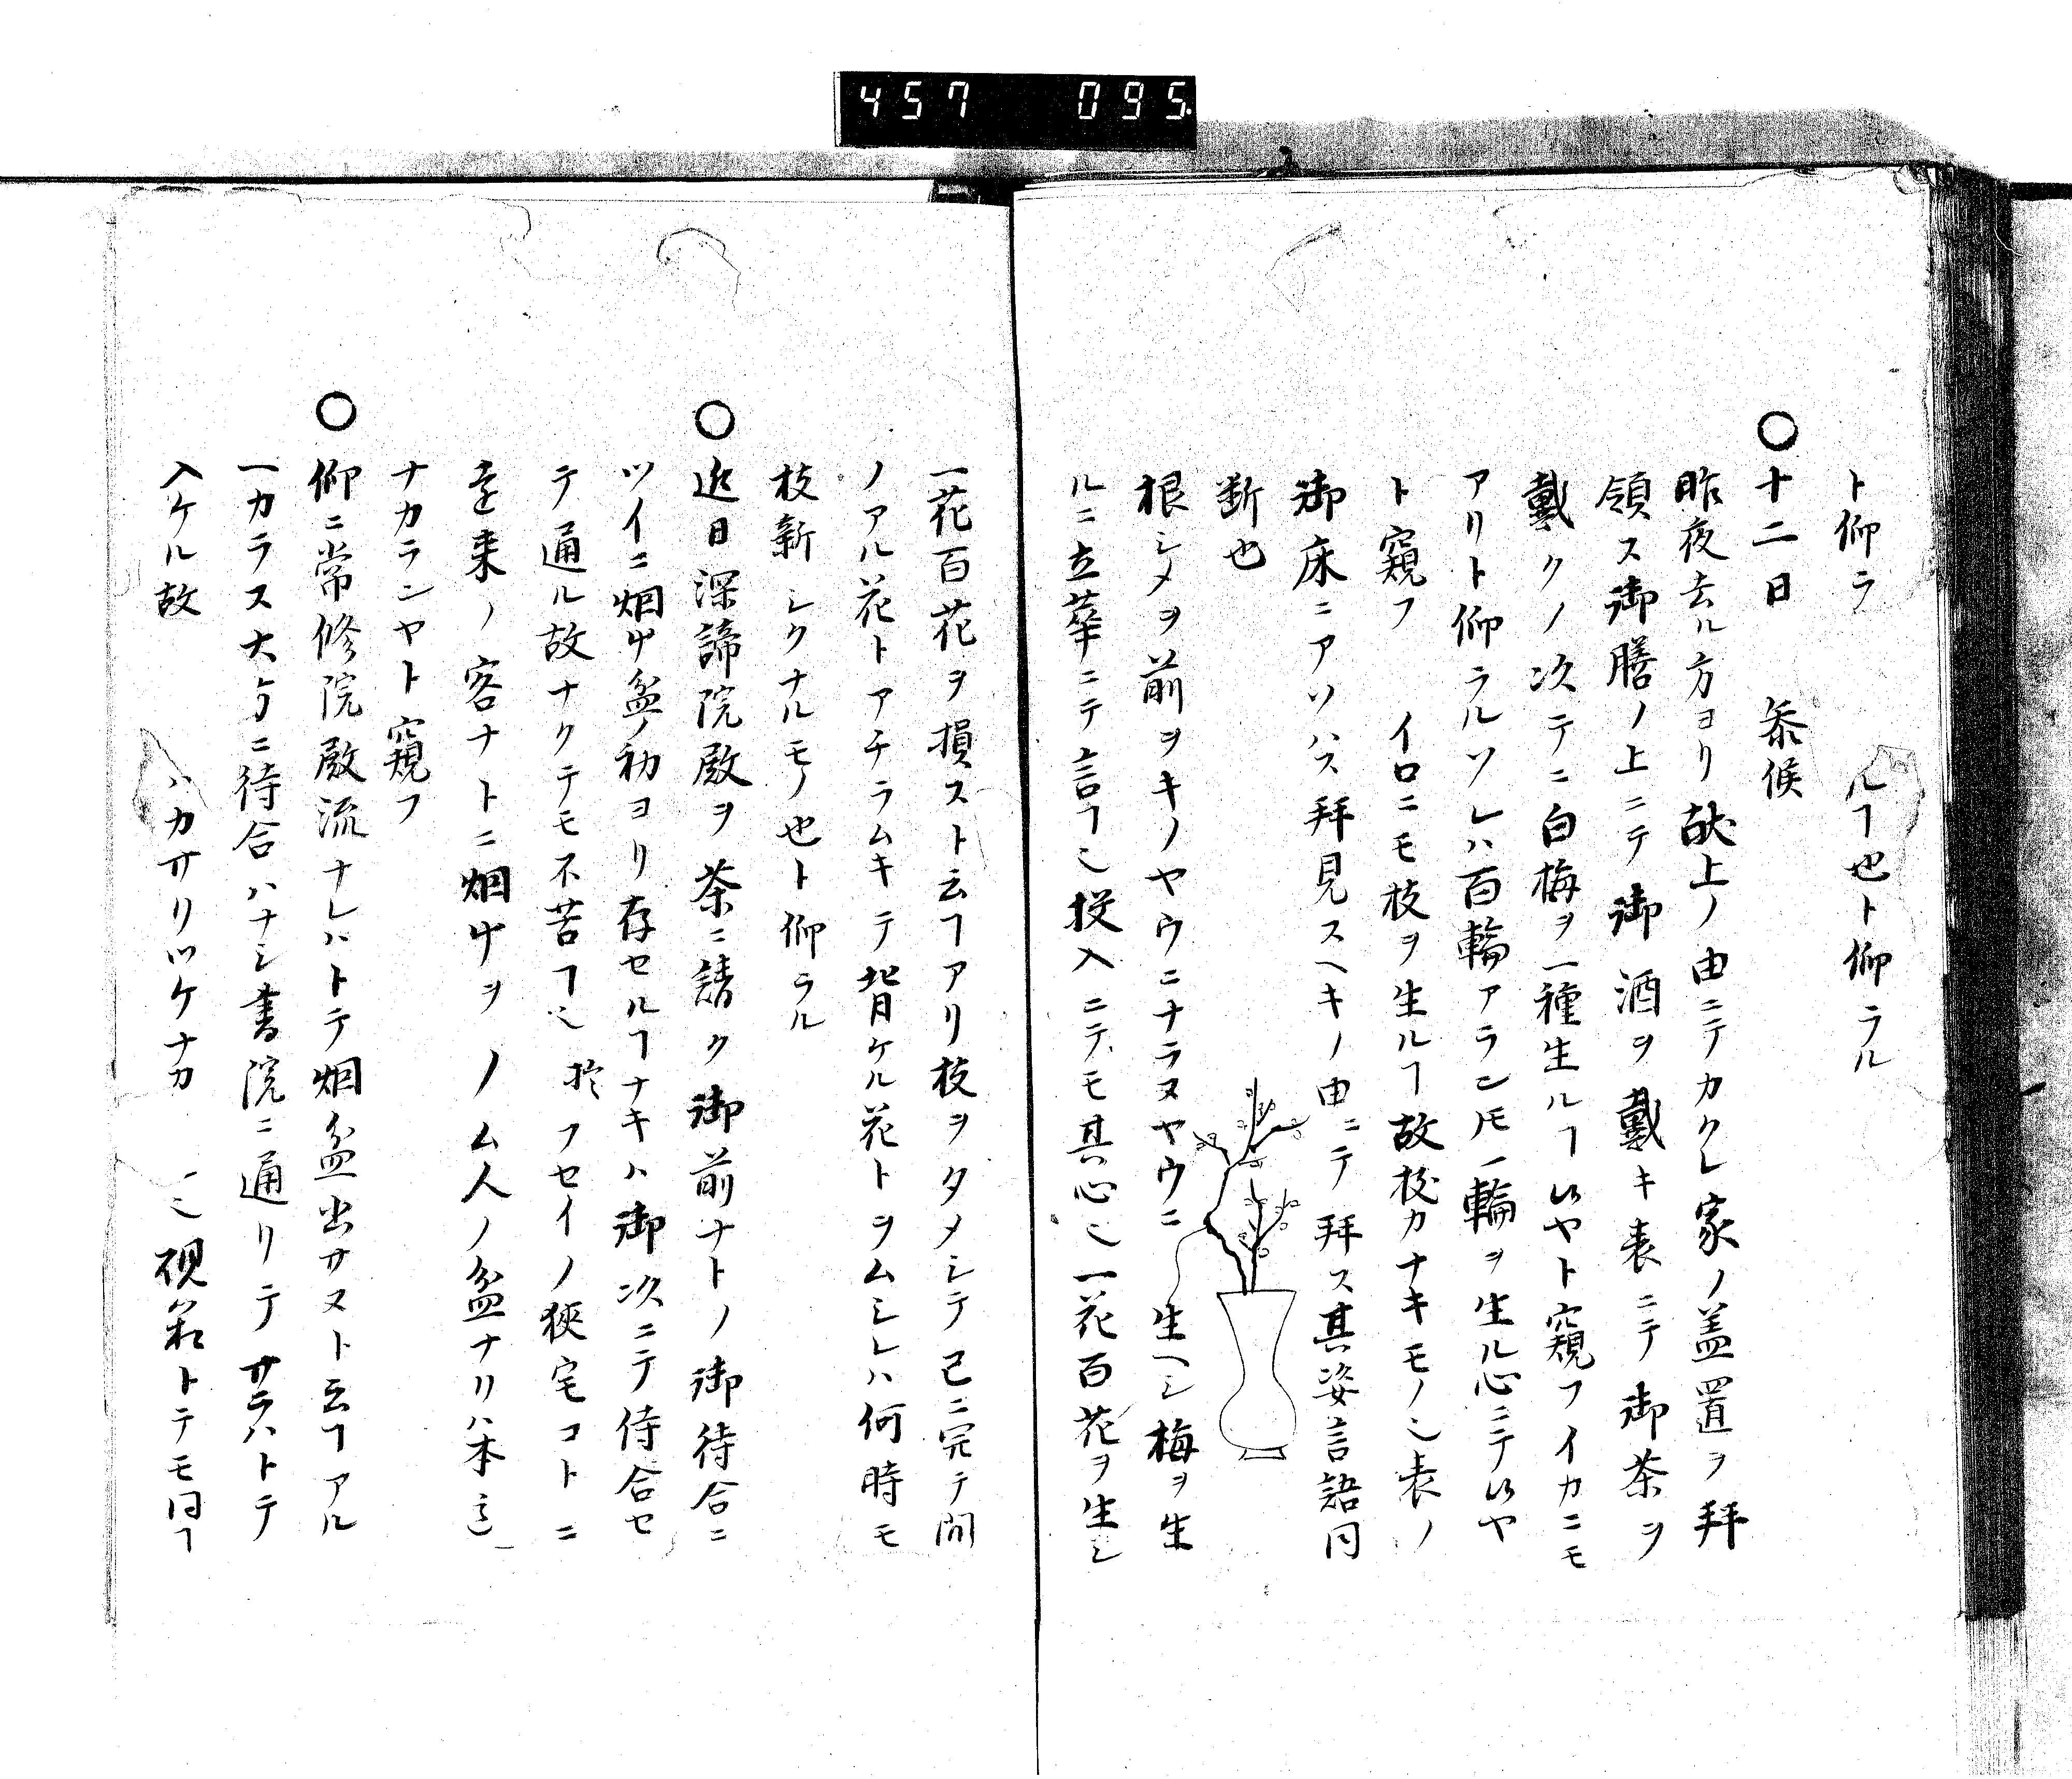 457 095
ト仰ラ ルヿ也ト仰ラル
○十二日 参候
昨夜去ル方ヨリ献上ノ由ニテカクレ家ノ蓋置ヲ拝
領ス御膳ノ上ニテ御酒ヲ戴キ表ニテ御茶ヲ
戴クノ次テニ白梅ヲ一種生ルヿ ヤト窺フイカニモ
アリト仰ラルソレハ百輪アランモ一輪ヲ生ル心ニテ ヤ
ト窺フ イロニモ枝ヲ生ルヿ故枝カナキモノ 表ノ
御床ニアソハス拝見スヘキノ由ニテ拝ス其姿言語同
断也
根シメヲ前ヲキノヤウニナラヌヤウニ 生ヘシ梅ヲ生
ルニ立華ニテ言フ 投入ニテモ其心 一花百花ヲ生シ
一花百花ヲ損スト云ヿアリ枝ヲタメシテ已ニ完テ間
ノアル花トアチラムキテ背ケル花トヲムシレハ何時モ
枝新シクナルモノ也ト仰ラル
○近日深諦院殿ヲ茶ニ請ク御前ナトノ御待合ニ
ツイニ烟中盆ノ初ヨリ存セルヿナキハ御次ニテ侍合セ
テ通ル故ナクテモ不苦ヿ 於フセイノ狹宅コトニ
遠来ノ客ナトニ烟中ヲノム人ノ盆ナリハ本
ナカランヤト窺フ
○仰ニ常修院殿流ナレハトテ烟盆出サヌト云ヿアル
一カラス大方ニ待合ハナシ書院ニ通リテサラハトテ
入ケル故 ハカサリツケナカ 硯箱トテモ同ヿ